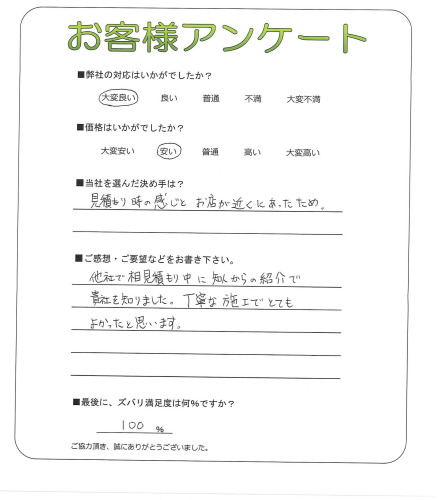 お客様アンケート
■弊社の対応はいかがでしたか?
大変良い 良い 普通 不満 大変不満
■価格はいかがでしたか?
大変安い 安い 普通 高い 大変高い
■当社を選んだ決め手は?
見積もり時の感じと お店が近くにあったため。
■ご感想・ご要望などをお書き下さい。
他社で相見積もり中に知人からの紹介で
貴社を知りました。丁寧な施工でとても
よかったと思います。
■最後に、ズバリ満足度は何%ですか?
100 %
ご協力頂き、誠にありがとうございました。